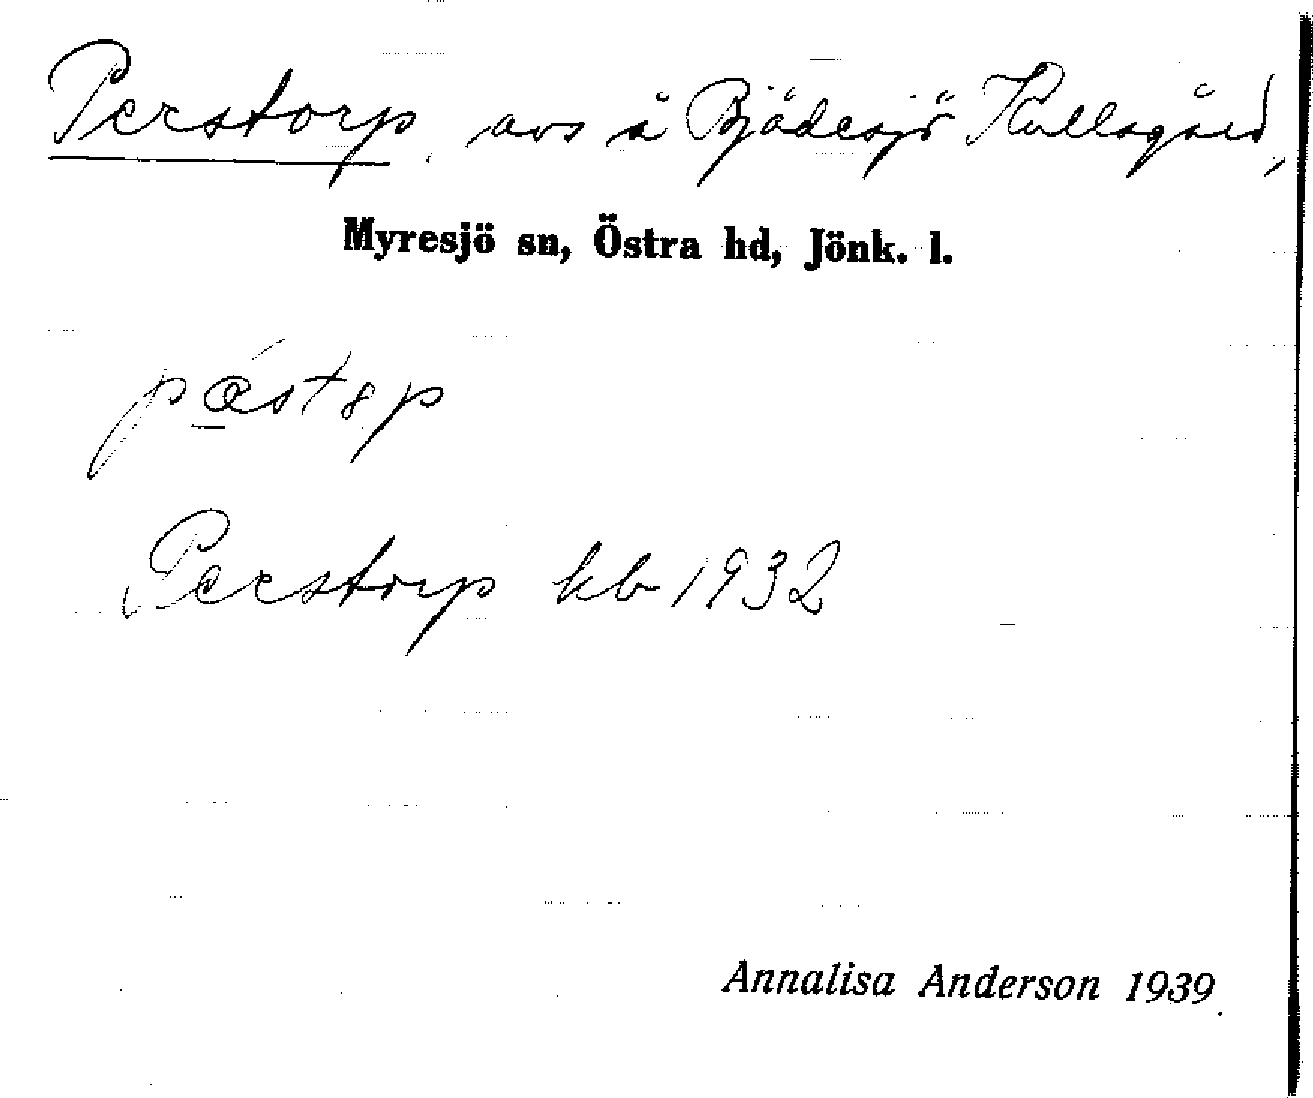 Perstorp, avs å Bjädesjö Kullsgård,
Myresjö sn, Östra hd, Jönk. l.
Perstorp kb 1932
Annalisa Anderson 1939